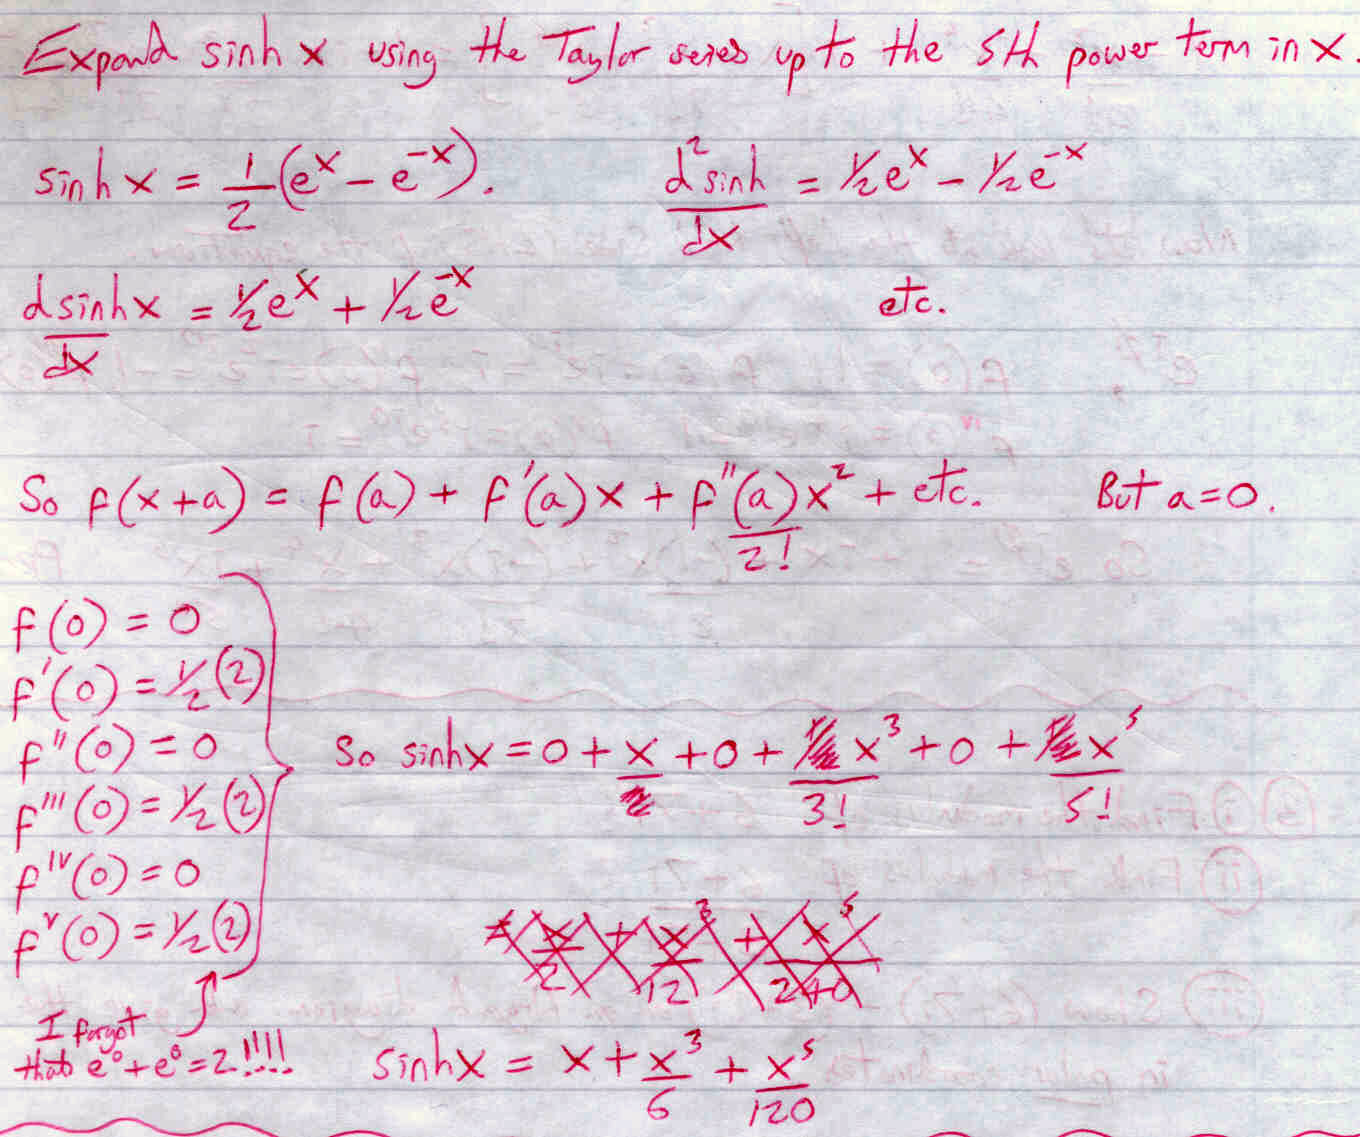 Expand sinh x using the Taylor series up to the 5th power term in x.
sinh x = 1/2 (eˣ − e⁻ˣ).
d sinh x / dx = ½eˣ + ½e⁻ˣ
d² sinh / dx = ½eˣ − ½e⁻ˣ
etc.
So f(x+a) = f(a) + f'(a)x + f''(a)x²/2! + etc. But a=0.
f(0) = 0
f'(0) = ½(2)
f''(0) = 0
f'''(0) = ½(2)
fᴵⱽ(0) = 0
fⱽ(0) = ½(2)
I forgot
that e⁰+e⁰=2!!!!
So sinh x = 0 + x + 0 + x³/3! + 0 + x⁵/5!
= x/2 + x³/12 + x⁵/240
sinh x = x + x³/6 + x⁵/120